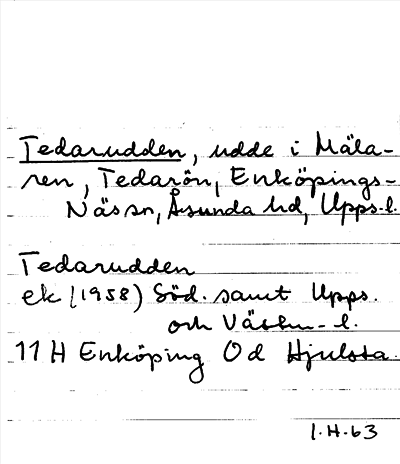 Tedarudden, udde i Mäla-
ren, Tedarön, Enköpings-
Näs sn, Åsunda hd, Upps.l.
Tedarudden
ek (1958) Söd. samt Upps.
och Västm-l.
11 H Enköping 0d Hjulsta.
I.H.63